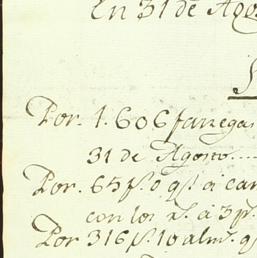 En 31 de Ago
Por. 1.606 fanegas
31 de Agosto....
Por. 65 f.s o q.s a
con los r.s a 3 p.
Por 316 f.s 10 alm.s q.